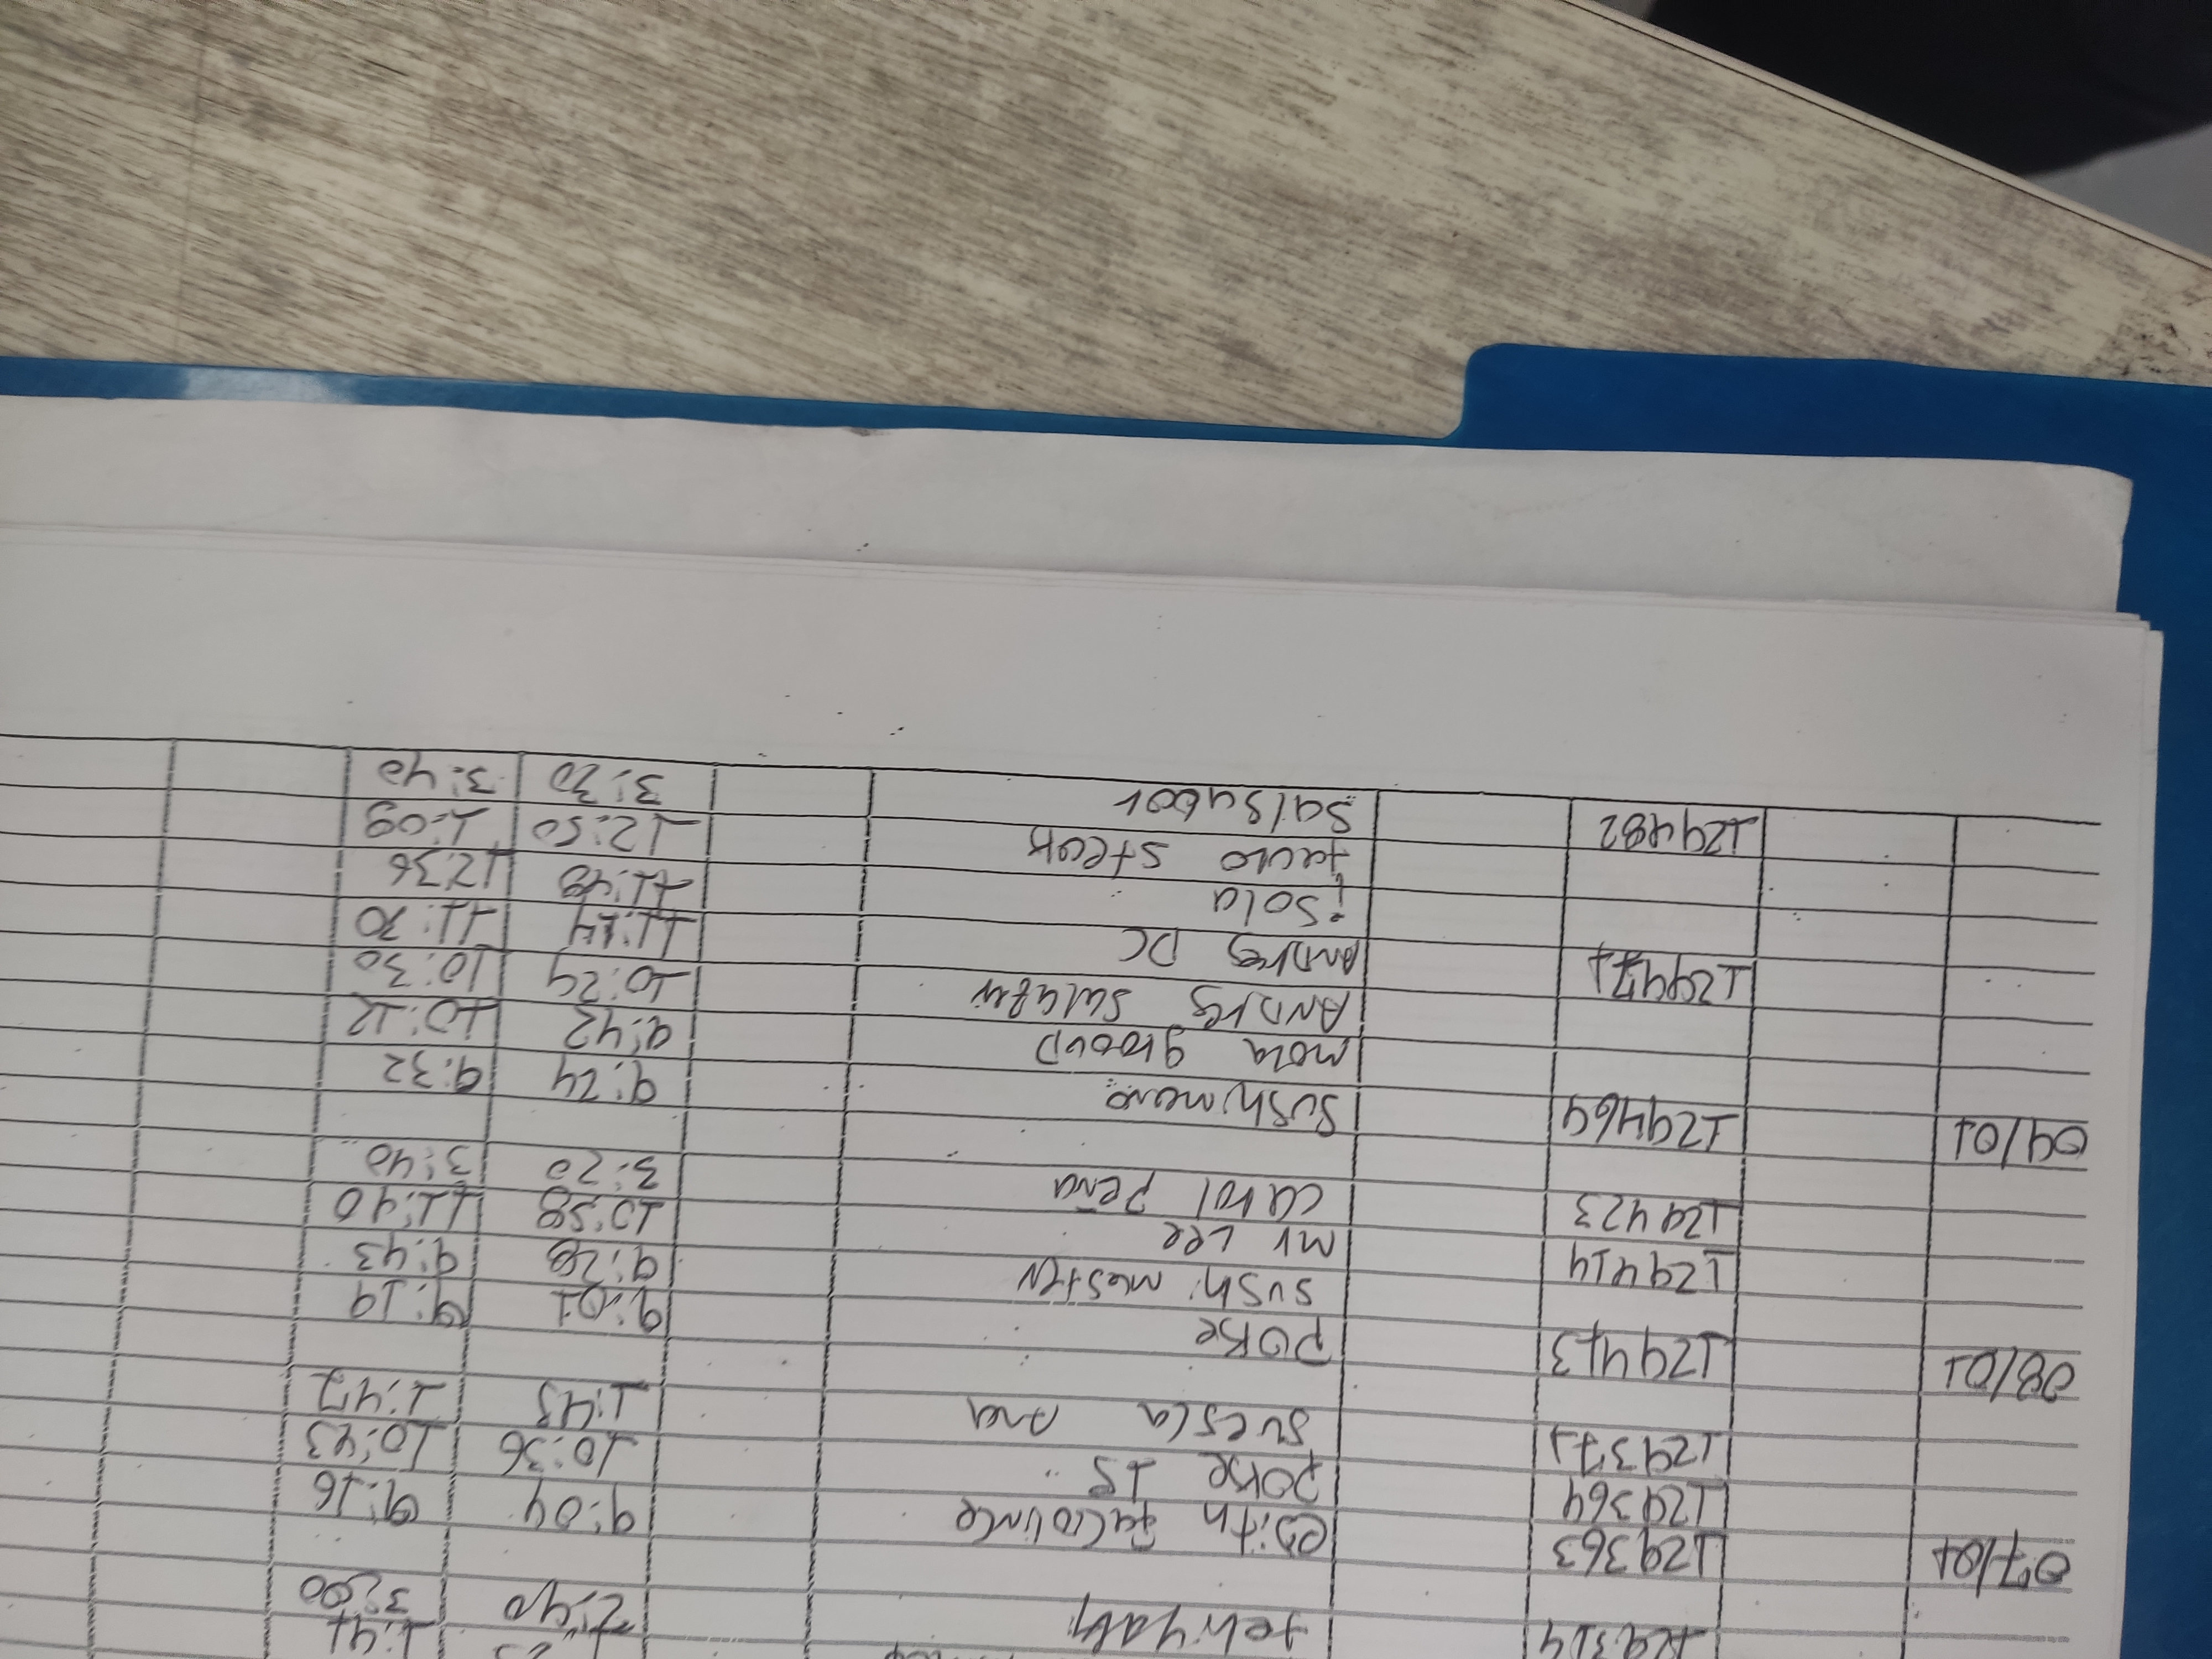 1:41
129314 teriyaki 2:40 3:00
07/01 129363 edith 9:04 9:16
129364 poke 15 10:36 10:43
129371 suesca Ana 1:45 1:47
08/01 129413 poke 9:01 9:19
sushi master 9:28 9:43
129414 mr Lee 10:58 11:40
129423 carol peña 3:20 3:40
09/01 129464 sushimaro 9:24 9:32
mora group 9:42 10:12
ANDres 10:24 10:30
129471 ANDres DC 11:14 11:30
isola 11:48 12:36
12:50 1:09
129482 Salsabor 3:30 3:40